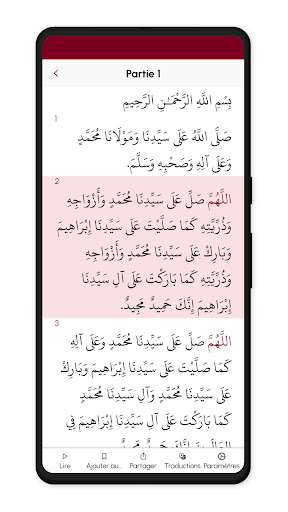 Partie 1
بِسْمِ اللَّهِ الرَّحْمَٰنِ الرَّحِيمِ
1
صَلَّى اللَّهُ عَلَى سَيِّدِنَا وَمَوْلَانَا مُحَمَّدٍ
وَعَلَى آلِهِ وَصَحْبِهِ وَسَلَّمَ.
2
اللَّهُمَّ صَلِّ عَلَى سَيِّدِنَا مُحَمَّدٍ وَأَزْوَاجِهِ
وَذُرِّيَّتِهِ كَمَا صَلَّيْتَ عَلَى سَيِّدِنَا إِبْرَاهِيمَ
وَبَارِكْ عَلَى سَيِّدِنَا مُحَمَّدٍ وَأَزْوَاجِهِ
وَذُرِّيَّتِهِ كَمَا بَارَكْتَ عَلَى آلِ سَيِّدِنَا
إِبْرَاهِيمَ إِنَّكَ حَمِيدٌ مَجِيدٌ.
3
اللَّهُمَّ صَلِّ عَلَى سَيِّدِنَا مُحَمَّدٍ وَعَلَى آلِهِ
كَمَا صَلَّيْتَ عَلَى سَيِّدِنَا إِبْرَاهِيمَ وَبَارِكْ
عَلَى سَيِّدِنَا مُحَمَّدٍ وَآلِ سَيِّدِنَا مُحَمَّدٍ
كَمَا بَارَكْتَ عَلَى آلِ سَيِّدِنَا إِبْرَاهِيمَ فِي
Lire
Ajouter au..
Partager
Traductions
Paramètres